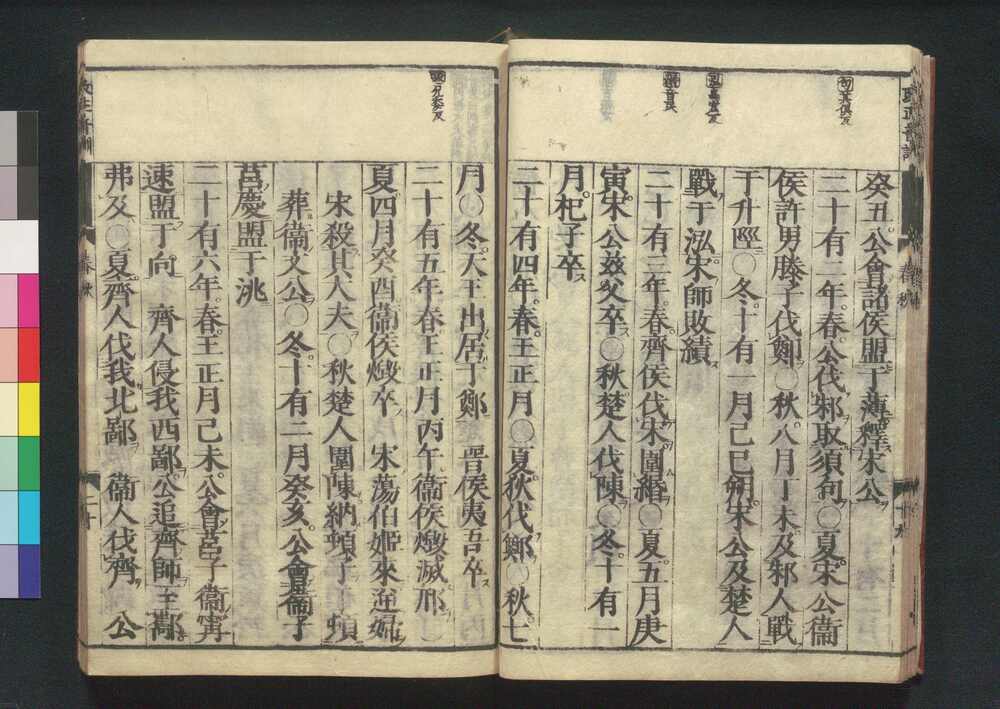 癸丑公會諸侯盟于薄釋宋公
二十有二年春公伐邾取須句〇夏宋公衞
侯許男滕子伐鄭〇秋八月丁未及邾人戰
于升陘〇冬十有一月己巳朔宋公及楚人
戰于泓宋師敗績
二十有三年春齊侯伐宋圍緡〇夏五月庚
寅宋公兹父卒〇秋楚人伐陳〇冬十有一
月杞子卒
二十有四年春王正月〇夏狄伐鄭〇秋七
月〇冬天王出居于鄭 晉侯夷吾卒
二十有五年春王正月丙午衞侯燬滅邢〇
夏四月癸酉衞侯燬卒 宋蕩伯姬來逆婦
宋殺其大夫〇秋楚人圍陳納頓子于頓
葬衞文公〇冬十有二月癸亥公會衞子
莒慶盟于洮
二十有六年春王正月己未公會莒子衞甯
速盟于向 齊人侵我西鄙公追齊師至酅
弗及〇夏齊人伐我北鄙 衞人伐齊 公
春秋
十九
春秋
二十